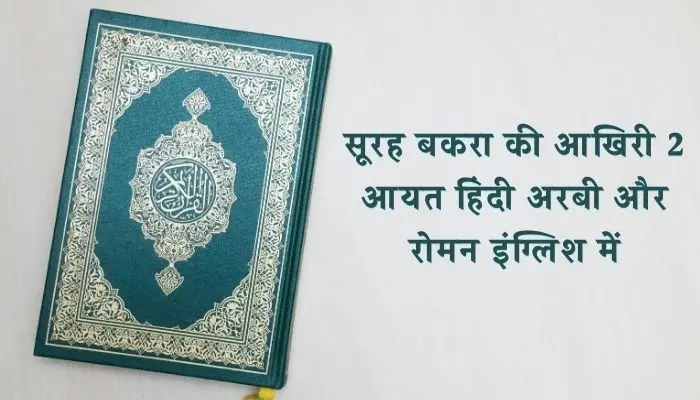 القرآن الكريم
सूरह बकरा की आखिरी 2
आयत हिंदी अरबी और
रोमन इंग्लिश में